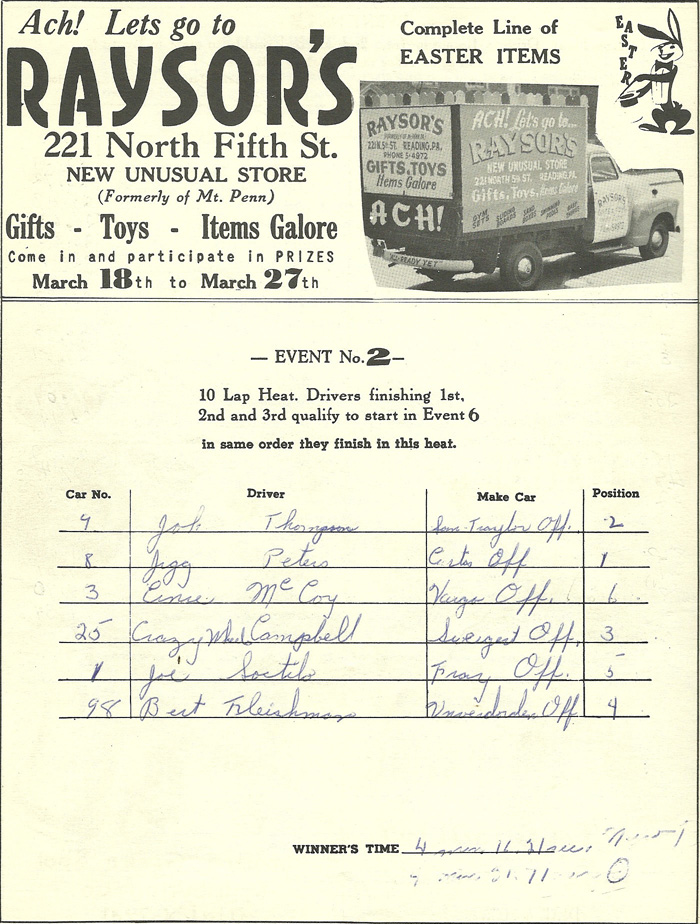 Ach! Lets go to
RAYSOR'S
221 North Fifth St.
NEW UNUSUAL STORE
(Formerly of Mt. Penn)
Gifts - Toys - Items Galore
Come in and participate in PRIZES
March 18th to March 27th
Complete Line of
EASTER ITEMS
EASTER
RAYSOR'S
221 N. 5th ST. READING, PA.
PHONE 5-4972
GIFTS, TOYS
Items Galore
ACH!
ACH! Let's go to...
RAYSOR'S
NEW UNUSUAL STORE
221 NORTH 5th ST. READING, PA.
Gifts, Toys, Items Galore
GYM SETS SLIDING BOARDS SAND BOXES SWIMMING POOLS
RAYSOR'S
— EVENT No. 2 —
10 Lap Heat. Drivers finishing 1st,
2nd and 3rd qualify to start in Event 6
in same order they finish in this heat.
Car No. Driver Make Car Position
Thompson Off. 2
8 Peters Off 1
3 Ernie McCoy Off. 6
25 Crazy Campbell Off. 3
1 Joe Off. 5
98 Bert Off 4
WINNER'S TIME 4 min.